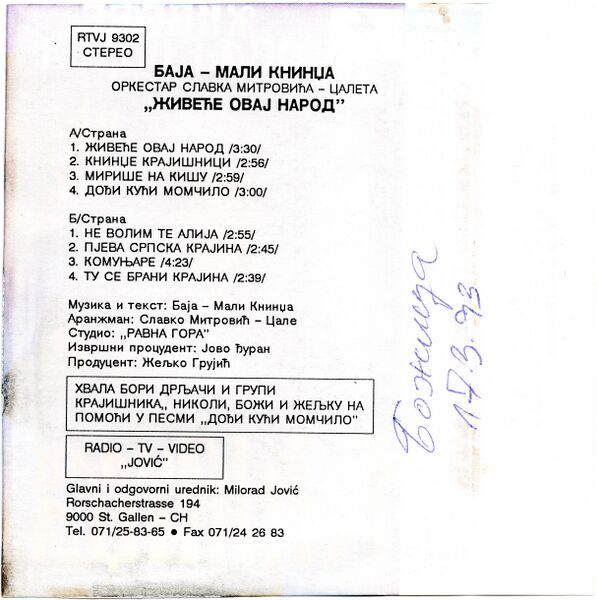 RTVJ 9302
СТЕРЕО
БАЈА – МАЛИ КНИНЏА
ОРКЕСТАР СЛАВКА МИТРОВИЋА – ЦАЛЕТА
„ЖИВЕЋЕ ОВАЈ НАРОД”
А/Страна
1. ЖИВЕЋЕ ОВАЈ НАРОД /3:30/
2. КНИНЏЕ КРАЈИШНИЦИ /2:56/
3. МИРИШЕ НА КИШУ /2:59/
4. ДОЂИ КУЋИ МОМЧИЛО /3:00/
Б/Страна
1. НЕ ВОЛИМ ТЕ АЛИЈА /2:55/
2. ПЈЕВА СРПСКА КРАЈИНА /2:45/
3. КОМУЊАРЕ /4:23/
4. ТУ СЕ БРАНИ КРАЈИНА /2:39/
Музика и текст: Баја – Мали Книнџа
Аранжман: Славко Митровић – Цале
Студио: „РАВНА ГОРА”
Извршни процудент: Јово Ђуран
Продуцент: Жељко Грујић
ХВАЛА БОРИ ДРЉАЧИ И ГРУПИ
КРАЈИШНИКА,, НИКОЛИ, БОЖИ И ЖЕЉКУ НА
ПОМОЋИ У ПЕСМИ „ДОЂИ КУЋИ МОМЧИЛО”
RADIO – TV – VIDEO
„JOVIĆ”
Glavni i odgovorni urednik: Milorad Jović
Rorschacherstrasse 194
9000 St. Gallen – CH
Tel. 071/25-83-65 • Fax 071/24 26 83
17.3.93